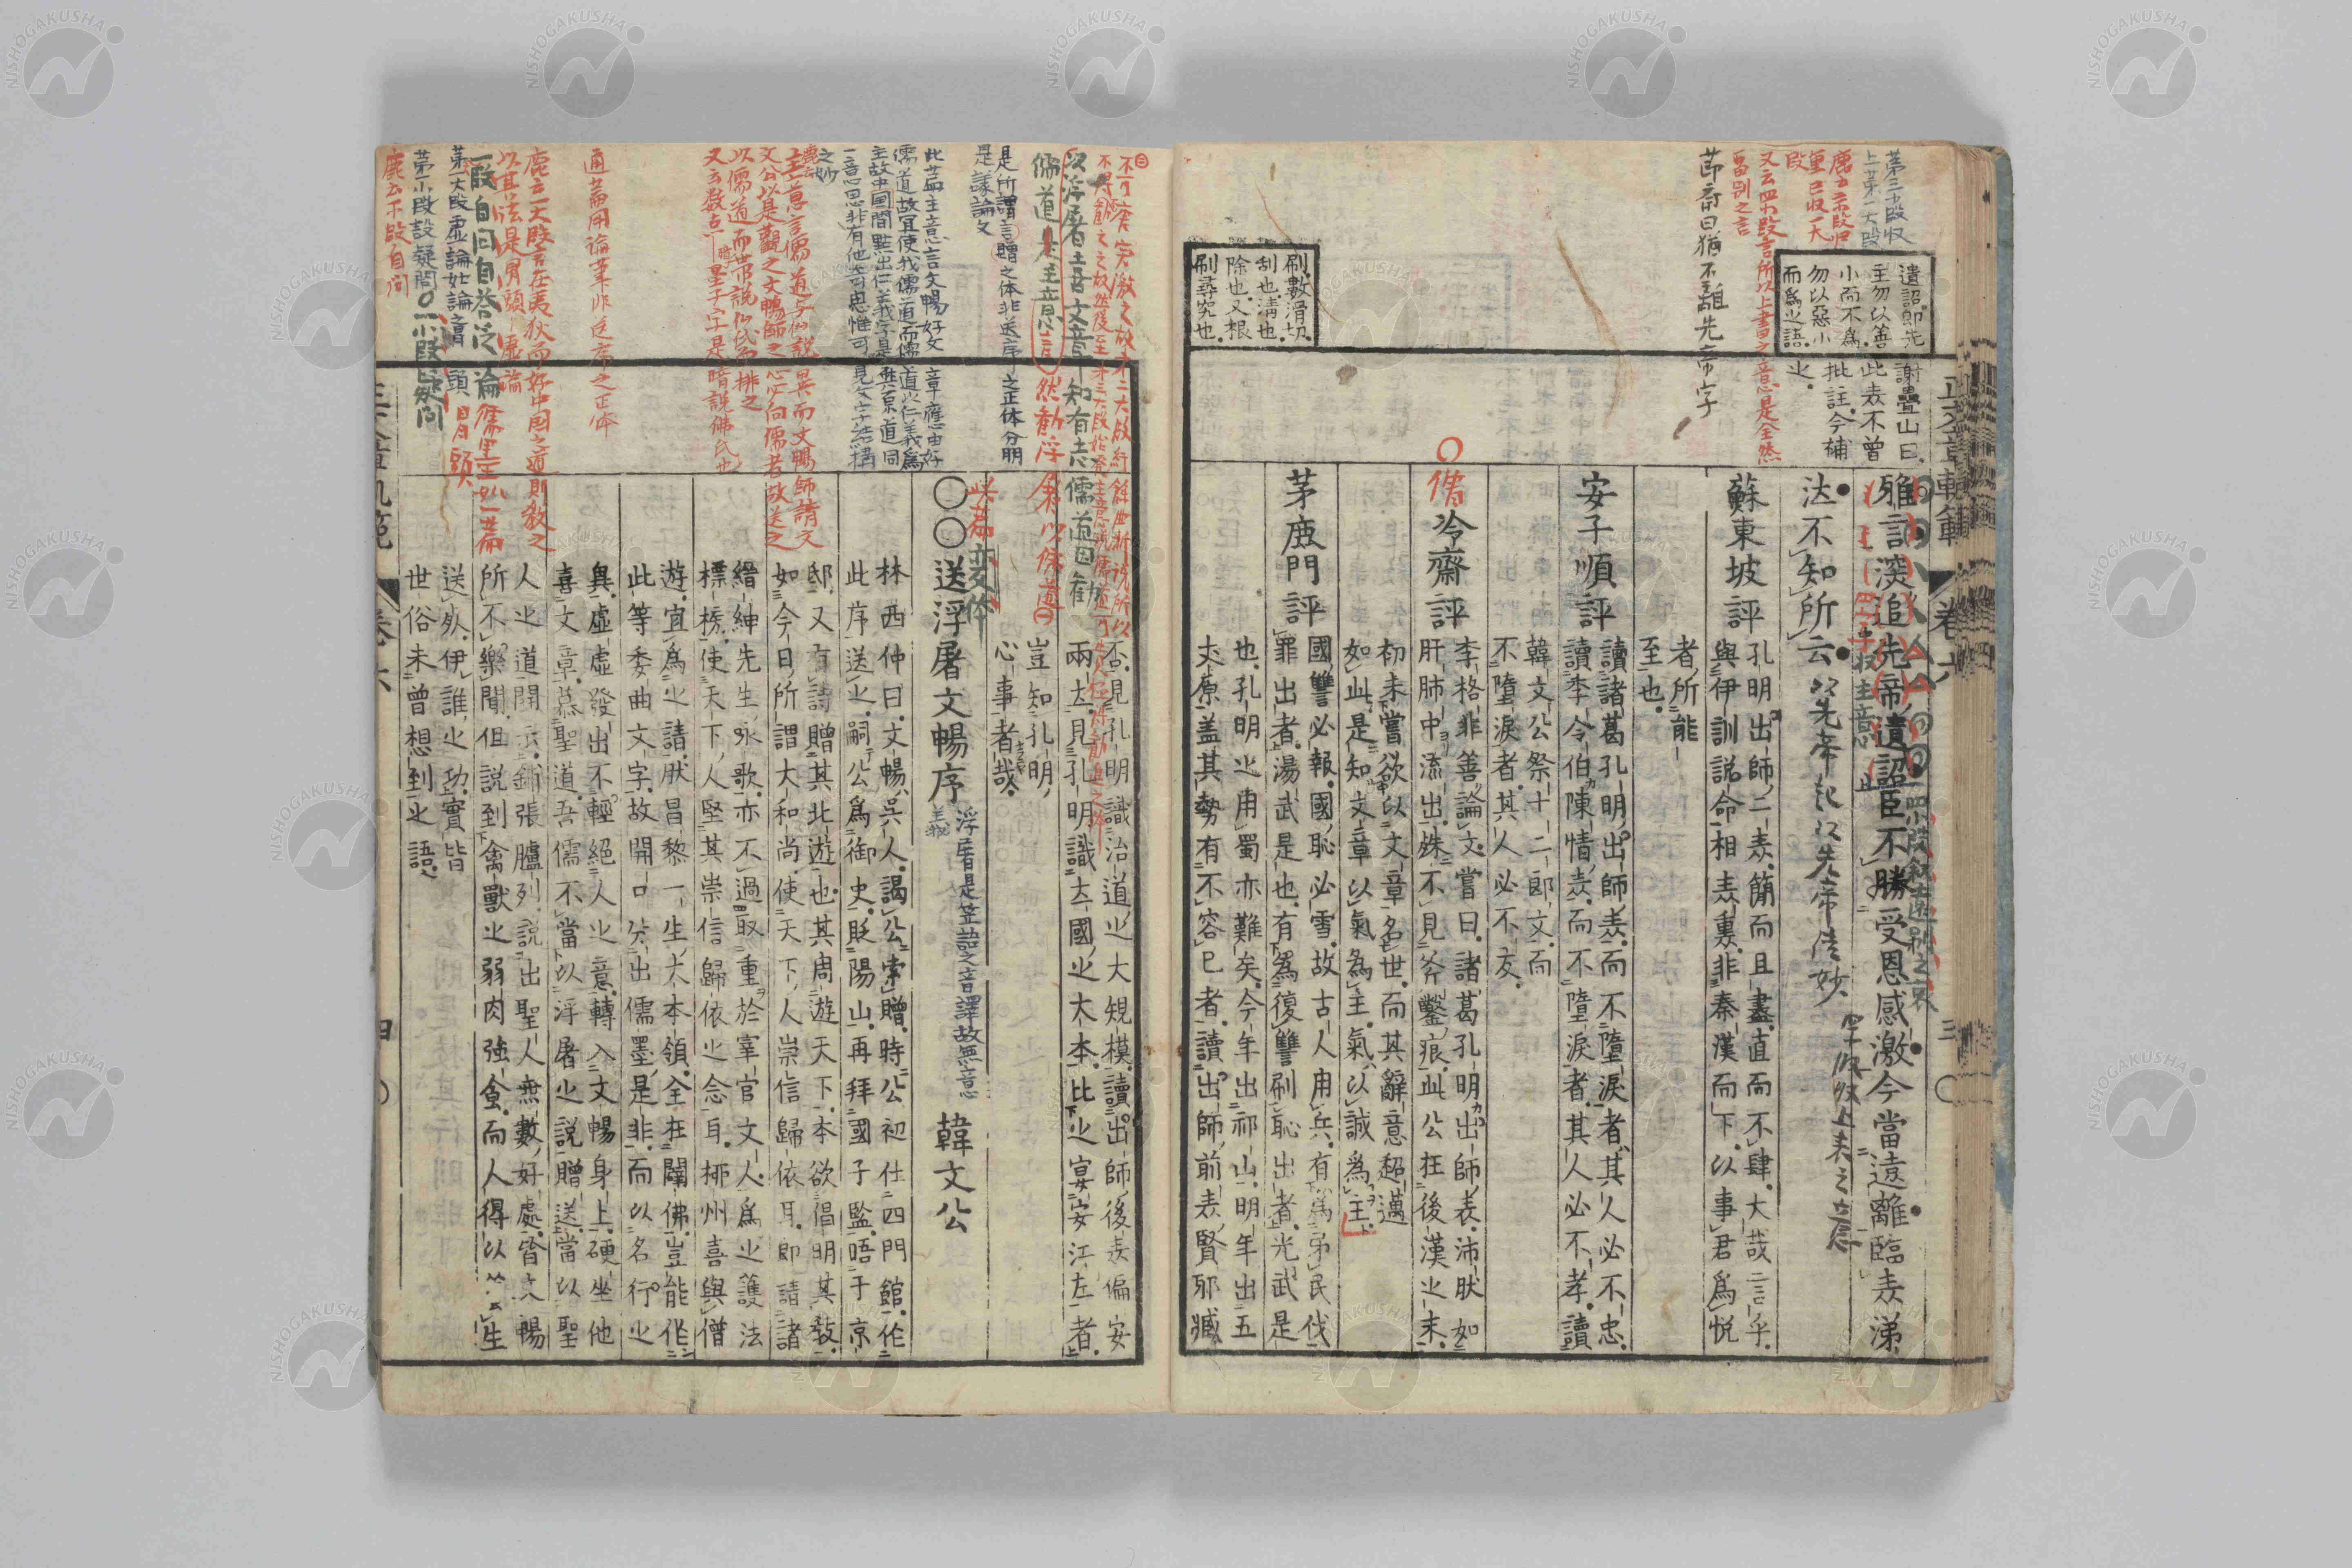 正文章軌範
卷六
三
遺詔即先
主勿以善
小而不為
勿以惡小
而為之語
謝疊山曰
此表不曾
批註今補
之
雅言深追先帝遺詔臣不勝受恩感激今當遠離臨表涕
泣不知所云
以先帝起以先帝結妙
第三小段收
上第一大段
又云四小段言所以上書之意是全然
留別之言
節齋曰猶不離先帝字
蘇東坡評
孔明出師二表簡而且盡直而不肆大哉言乎
與伊訓說命相表裏非秦漢而下以事君為悅
者所能
至也
安子順評
讀諸葛孔明出師表而不墮淚者其人必不忠
讀李令伯陳情表而不墮淚者其人必不孝讀
韓文公祭十二郎文而
不墮淚者其人必不友
僧冷齋評
李格非善論文嘗曰諸葛孔明出師表沛肰如
肝肺中流出殊不見斧鑿痕此公在後漢之末
初未嘗欲以文章名世而其辭意超邁
如此是知文章以氣為主氣以誠為主
茅鹿門評
國讐必報國恥必雪故古人用兵有為弔民伐
罪出者湯武是也有為復讐刷恥出者光武是
也孔明之用蜀亦難矣今年出祁山明年出五
丈原蓋其勢有不容已者讀出師前表賢邪臧
刷數滑切
刮也清也
除也又根
刷尋究也
否見孔明識治道之大規模讀出師後表偏安
兩立見孔明識立國之大本比之宴安江左者
豈知孔明
心事者哉
以浮屠喜文章知有志儒道因勸
儒道是主意言然勸浮
屠以儒道
是所謂言贈之体非送序之正体分明
是議論文
此篇変体
○○送浮屠文暢序
浮屠是竺語之音譯故無意
義
韓文公
此篇主意言文暢好文章應由好
儒道故宜使我儒道而儒道以仁義為
主故中間點出仁義字是與原道同
一意思非有他奇思惟可見文字結構
之妙
林西仲曰文暢吳人謁公索贈時公初仕四門館作
此序送之嗣公為御史貶陽山再拜國子監唔于京
邸又有詩贈其北遊也其周遊天下本欲倡明其教
如今日所謂大和尚使天下人崇信歸依耳即請諸
縉紳先生咏歌亦不過取重於宰官文人為之護法
標榜使天下人堅其崇信歸依之念耳柳州喜與僧
遊宜為之請肰昌黎一生大本領全在闢佛豈能作
此等委曲文字故開口分出儒墨是非而以名行之
異虛虛發出不輕絕人之意轉入文暢身上硬坐他
喜文章慕聖道吾儒不當以浮屠之說贈送當以聖
人之道開示鋪張臚列說出聖人無數好處皆文暢
所不樂聞但說到禽獸之弱肉強食而人得以生
送死伊誰之功實皆
世俗未曾想到之語
通篇用論筆非送序之正体
鹿云一大段言在夷狄而好中國之道則教之
以其法是冐頭虛論
一段自問自答泛論
第一大段虛論始論首冒頭
第一小段設疑問○一小段疑問
鹿云小段自問
卷六
四